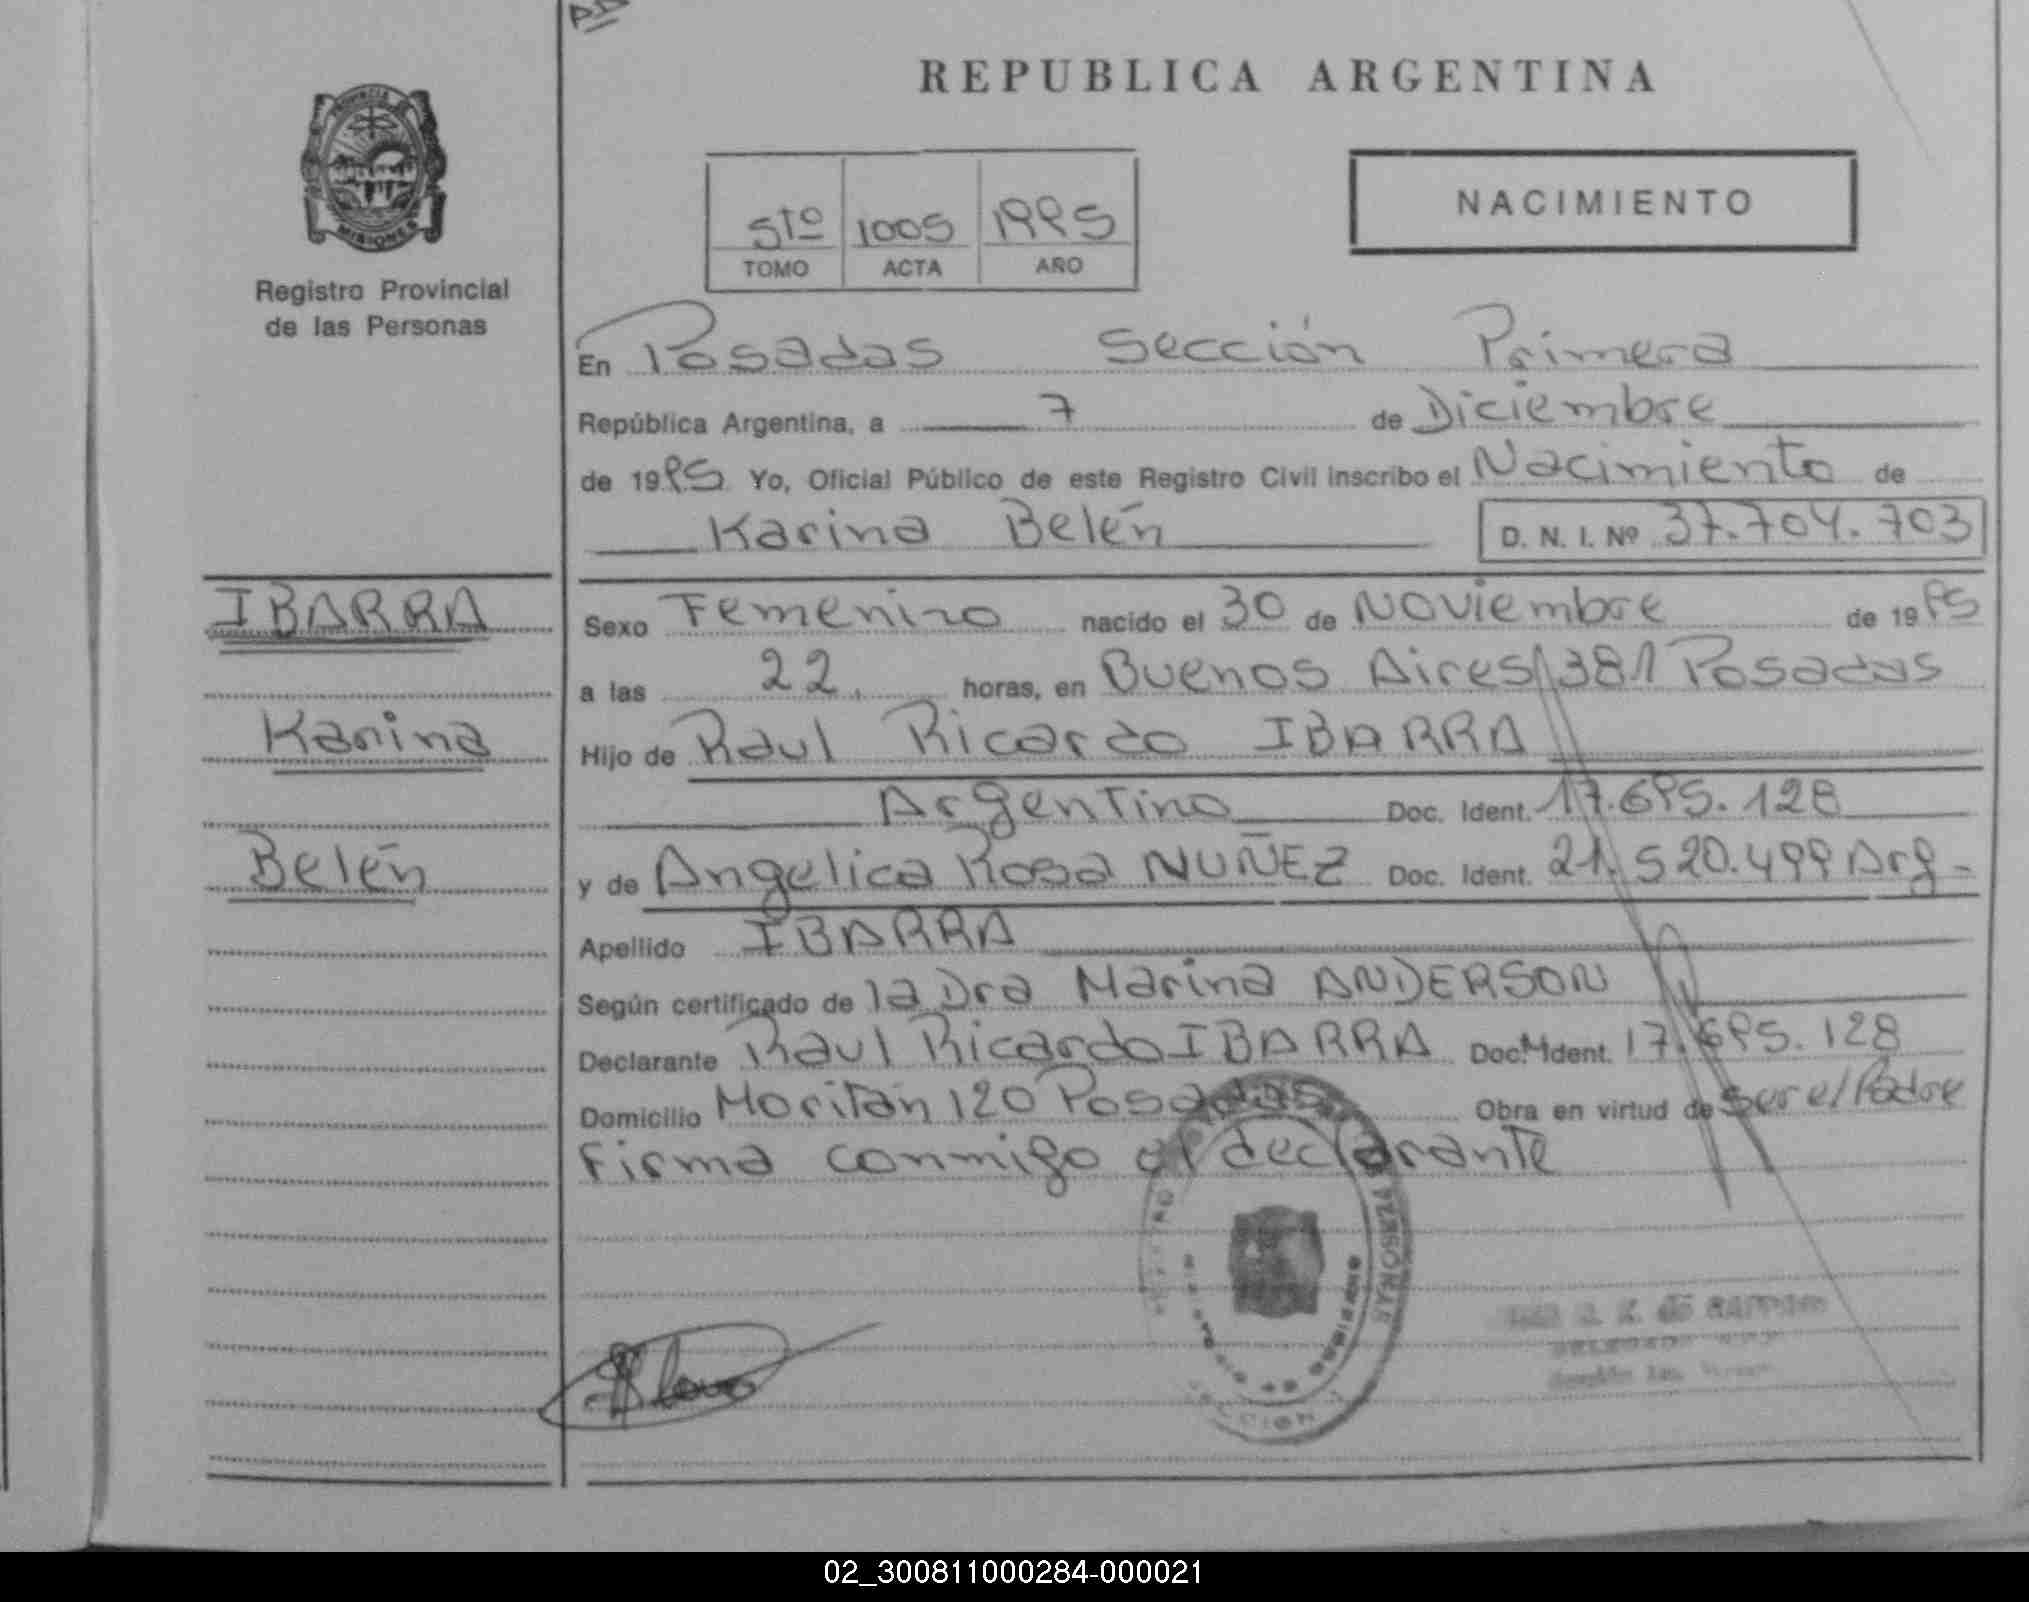 REPUBLICA ARGENTINA
PROVINCIA DE
MISIONES
Registro Provincial
de las Personas
5to 1005 1995
TOMO ACTA AÑO
NACIMIENTO
En Posadas Sección Primera
República Argentina, a 7 de Diciembre
de 1995 Yo, Oficial Público de este Registro Civil inscribo el Nacimiento de
Karina Belén D. N. I. Nº 37.704.703
IBARRA
Karina
Belén
Sexo Femenino nacido el 30 de Noviembre de 1995
a las 22 horas, en Buenos Aires 381 Posadas
Hijo de Raul Ricardo IBARRA
Argentino Doc. Ident. 17.695.128
y de Angelica Rosa NUÑEZ Doc. Ident. 21.520.499 Arg-
Apellido IBARRA
Según certificado de la Dra Marina ANDERSON
Declarante Raul Ricardo IBARRA Doc. Ident. 17.695.128
Domicilio Moritán 120 Posadas Obra en virtud de ser el Padre
Firma conmigo el declarante
02_300811000284-000021